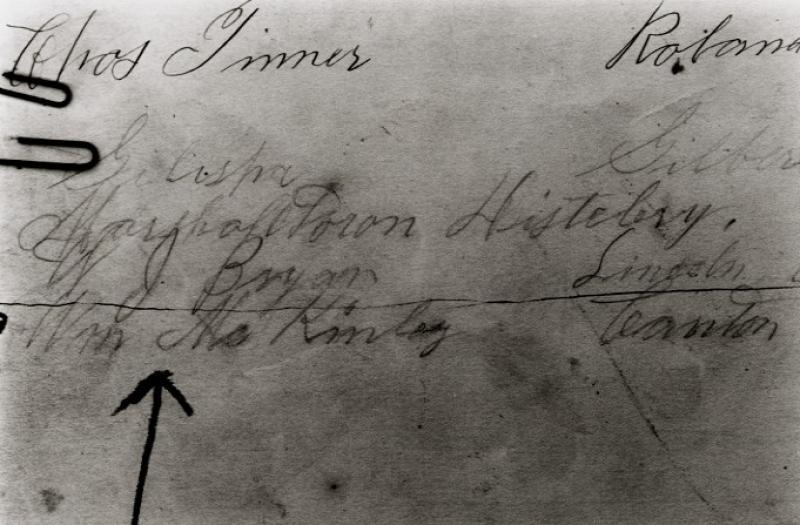 Thos Tinner Roland
Gilispa Gilber
Marshall Town Histelry.
W J Bryan Lincoln
Wm McKinley Canton